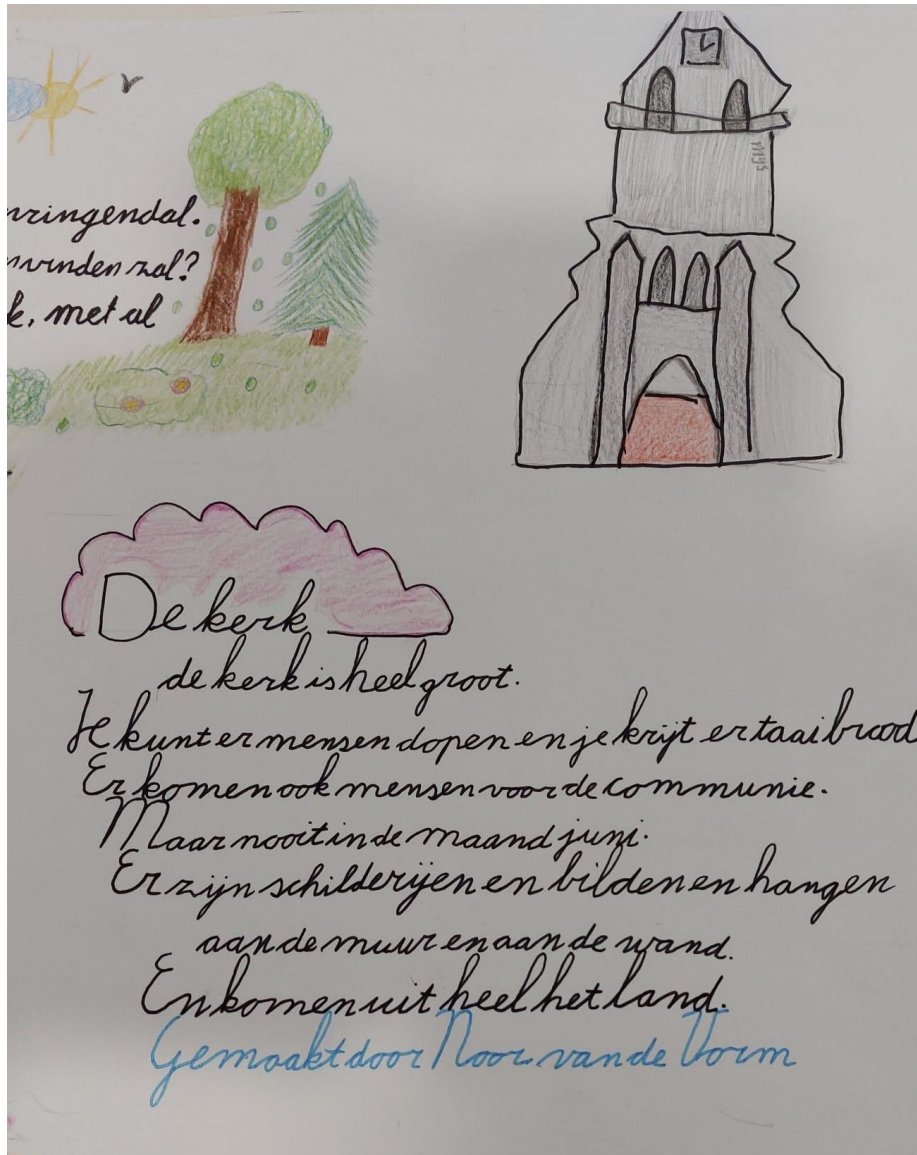 nringendal.
vinden zal?
k, met al
Mijs
De kerk
de kerk is heel groot.
Je kunt er mensen dopen en je krijt er taai brood
Er komen ook mensen voor de communie.
Maar nooit in de maand juni.
Er zijn schilderijen en bilden en hangen
aan de muur en aan de wand.
En komen uit heel het land.
Gemaakt door Noor van de Vorm